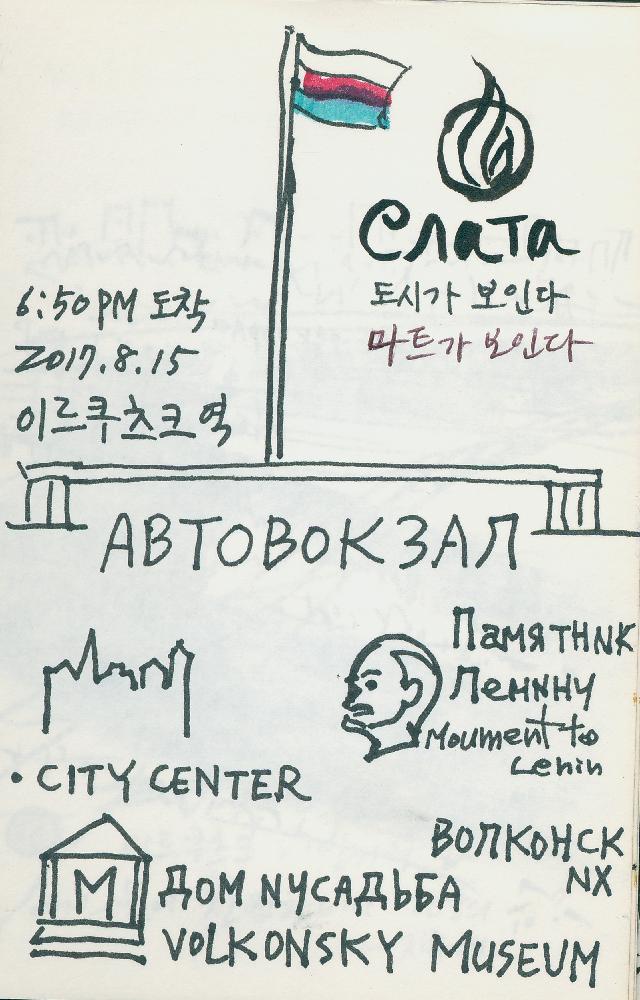 Слата
도시가 보인다
마트가 보인다
6:50PM 도착
2017.8.15
이르쿠츠크역
АВТОВОКЗАЛ
ПамятнNк
ЛенNнУ
Moument to
Lenin
• CITY CENTER
M
ВОЛКОНСК
NX
ДОМ NУСАДЬБА
VOLKONSKY MUSEUM